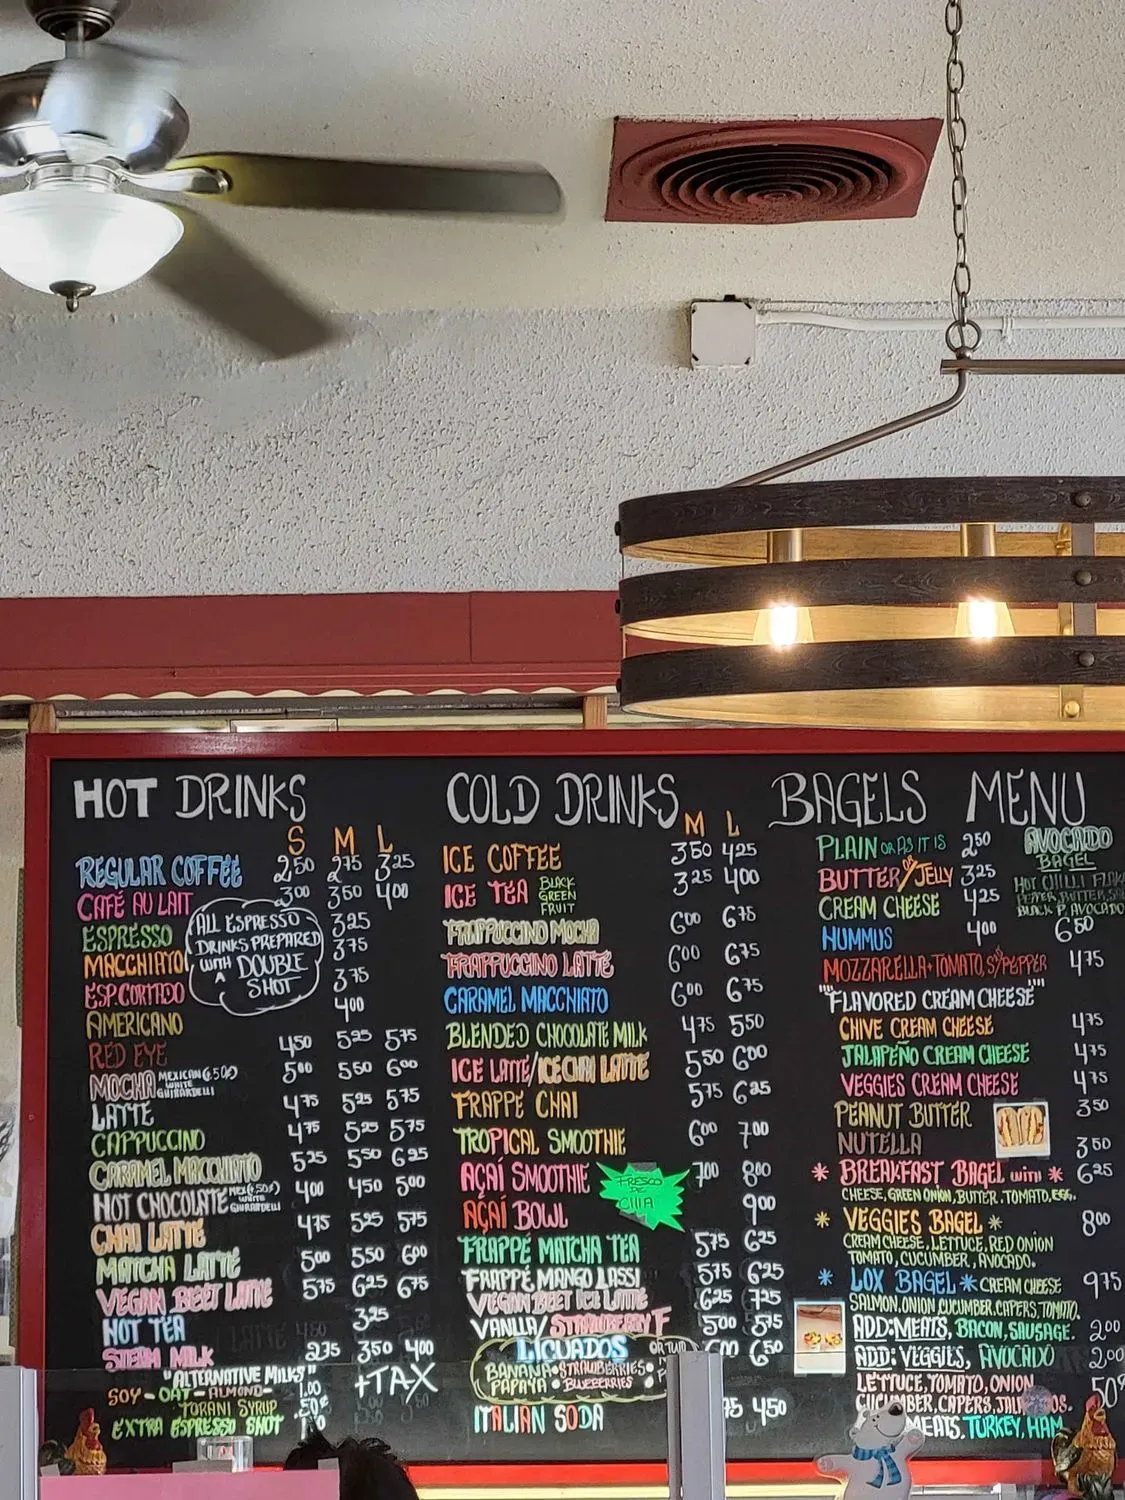 HOT DRINKS
S M L
REGULAR COFFEE 2.50 2.75 3.25
CAFÉ AU LAIT 3.00 3.50 4.00
ESPRESSO 3.25
MACCHIATO 3.75
ESP.CORTADO 3.75
AMERICANO 4.00
ALL ESPRESSO
DRINKS PREPARED
WITH A DOUBLE
SHOT
RED EYE 4.50 5.25 5.75
MOCHA MEXICAN(.50¢) WHITE GHIRARDELLI 5.00 5.50 6.00
LATTE 4.75 5.25 5.75
CAPPUCCINO 4.75 5.25 5.75
CARAMEL MACCHIATO 5.25 5.50 6.25
HOT CHOCOLATE MEX(.50¢) WHITE GHIRARDELLI 4.00 4.50 5.00
CHAI LATTE 4.75 5.25 5.75
MATCHA LATTE 5.00 5.50 6.00
VEGAN BEET LATTE 5.75 6.25 6.75
HOT TEA 3.25
STEAM MILK 2.75 3.50 4.00
"ALTERNATIVE MILKS"
SOY-OAT-ALMOND- 1.00
TORANI SYRUP
EXTRA ESPRESSO SHOT
+TAX
COLD DRINKS
M L
ICE COFFEE 3.50 4.25
ICE TEA BLACK GREEN FRUIT 3.25 4.00
FRAPPUCCINO MOCHA 6.00 6.75
FRAPPUCCINO LATTE 6.00 6.75
CARAMEL MACCHIATO 6.00 6.75
BLENDED CHOCOLATE MILK 4.75 5.50
ICE LATTE/ICE CHAI LATTE 5.50 6.00
FRAPPE CHAI 5.75 6.25
TROPICAL SMOOTHIE 6.00 7.00
AÇAÍ SMOOTHIE 7.00 8.00
FRESCO
DE
CHIA
AÇAÍ BOWL 9.00
FRAPPE MATCHA TEA 5.75 6.25
FRAPPE, MANGO LASSI 5.75 6.25
VEGAN BEET ICE LATTE 6.25 7.25
VANILLA/STRAWBERRY F 5.00 5.75
LICUADOS 6.50
BANANA•STRAWBERRIES•
PAPAYA•BLUEBERRIES•
ITALIAN SODA 4.50
BAGELS MENU
PLAIN OR AS IT IS 2.50
BUTTER OR/JELLY 3.25
CREAM CHEESE 4.25
HUMMUS 4.00
AVOCADO
BAGEL
HOT CHILLI FLAK
PEPPER, BUTTER,
BLACK P, AVOCADO
6.50
MOZZARELLA•TOMATO, S/PEPPER 4.75
"FLAVORED CREAM CHEESE"
CHIVE CREAM CHEESE 4.75
JALAPEÑO CREAM CHEESE 4.75
VEGGIES CREAM CHEESE 4.75
PEANUT BUTTER 3.50
NUTELLA 3.50
*BREAKFAST BAGEL WITH* 6.25
CHEESE, GREEN ONION, BUTTER, TOMATO, EGG.
*VEGGIES BAGEL* 8.00
CREAM CHEESE, LETTUCE, RED ONION
TOMATO, CUCUMBER, AVOCADO.
*LOX BAGEL* CREAM CHEESE 9.75
SALMON, ONION, CUCUMBER, CAPERS, TOMATO.
ADD: MEATS, BACON, SAUSAGE. 2.00
ADD: VEGGIES, AVOCADO 2.00
LETTUCE, TOMATO, ONION 50¢
CUCUMBER, CAPERS,
MEATS, TURKEY, HAM